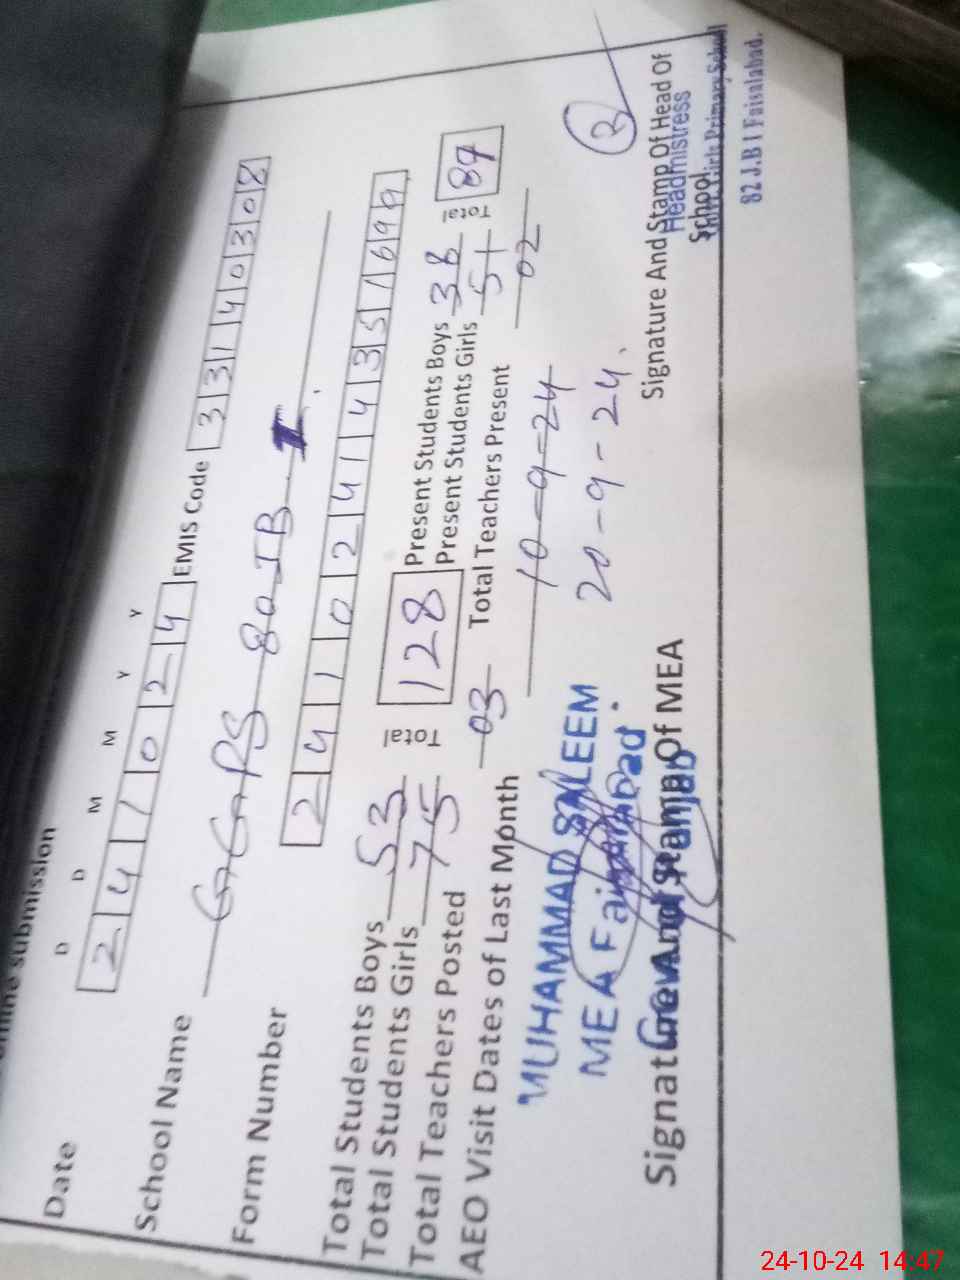 submission
D D M M Y Y
Date 2 4 1 0 2 4 EMIS Code 3 3 1 4 0 3 0 8
School Name GGPS 80 JB I
Form Number 2 4 1 1 0 2 4 1 4 3 5 1 6 9 9
Total Students Boys 53 Total 128 Present Students Boys 38 Total 89
Total Students Girls 75 Present Students Girls 51
Total Teachers Posted 03 Total Teachers Present 02
AEO Visit Dates of Last Month 10-9-24
20-9-24
MUHAMMAD SALEEM
MEA Faisalabad
Signature And Stamp Of MEA
Signature And Stamp Of Head Of
School
Headmistress
Girls Primary School
82 J.B I Faisalabad.
24-10-24 14:47